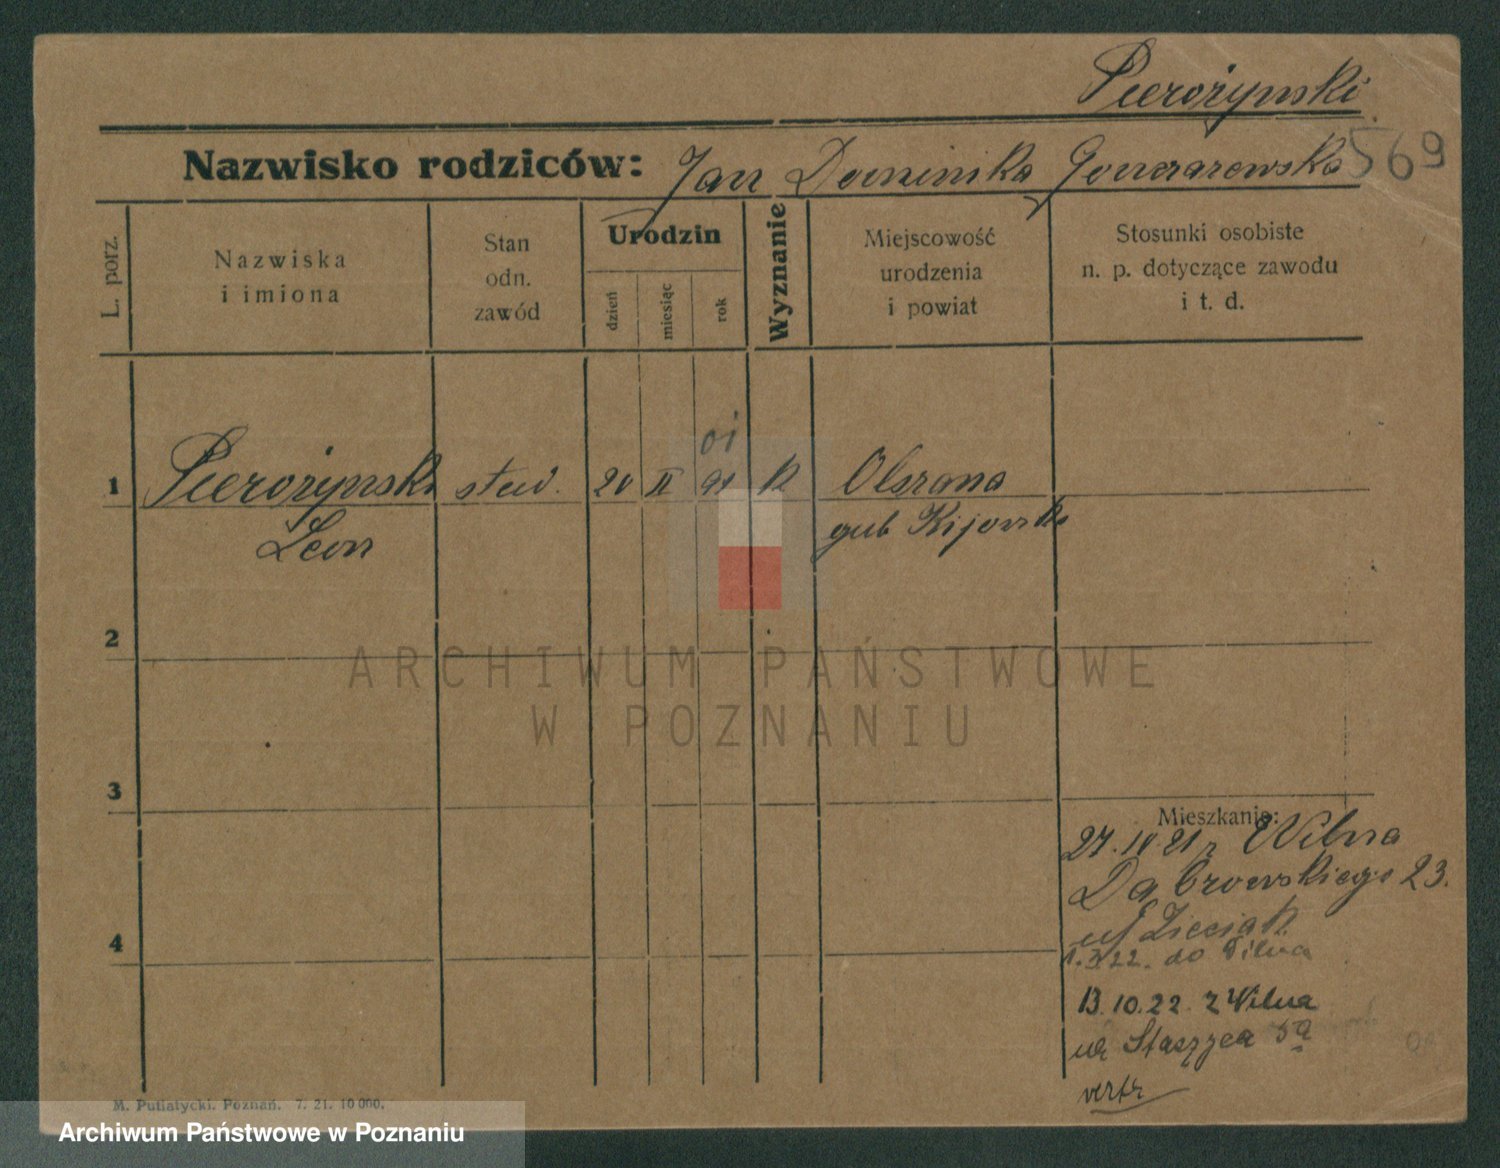 Pierożyński
Nazwisko rodziców: Jan Dominika Gonczarewska 569
L. porz.
Nazwiska
i imiona
Stan
odn.
zawód
Urodzin
dzień
miesiąc
rok
Wyznanie
Miejscowość
urodzenia
i powiat
Stosunki osobiste
n. p. dotyczące zawodu
i t. d.
01
1 Pierożyński stud. 20 II 91 k Olszana
Leon gub Kijowska
2
ARCHIWUM PAŃSTWOWE
W POZNANIU
3
Mieszkanie:
27.10.21 r Wilna
Dąbrowskiego 23.
4
1.3.22. do Wilna
13.10.22. z Wilna
Staszyca 5a
M. Putiatycki. Poznań. 7. 21. 10 000.
Archiwum Państwowe w Poznaniu